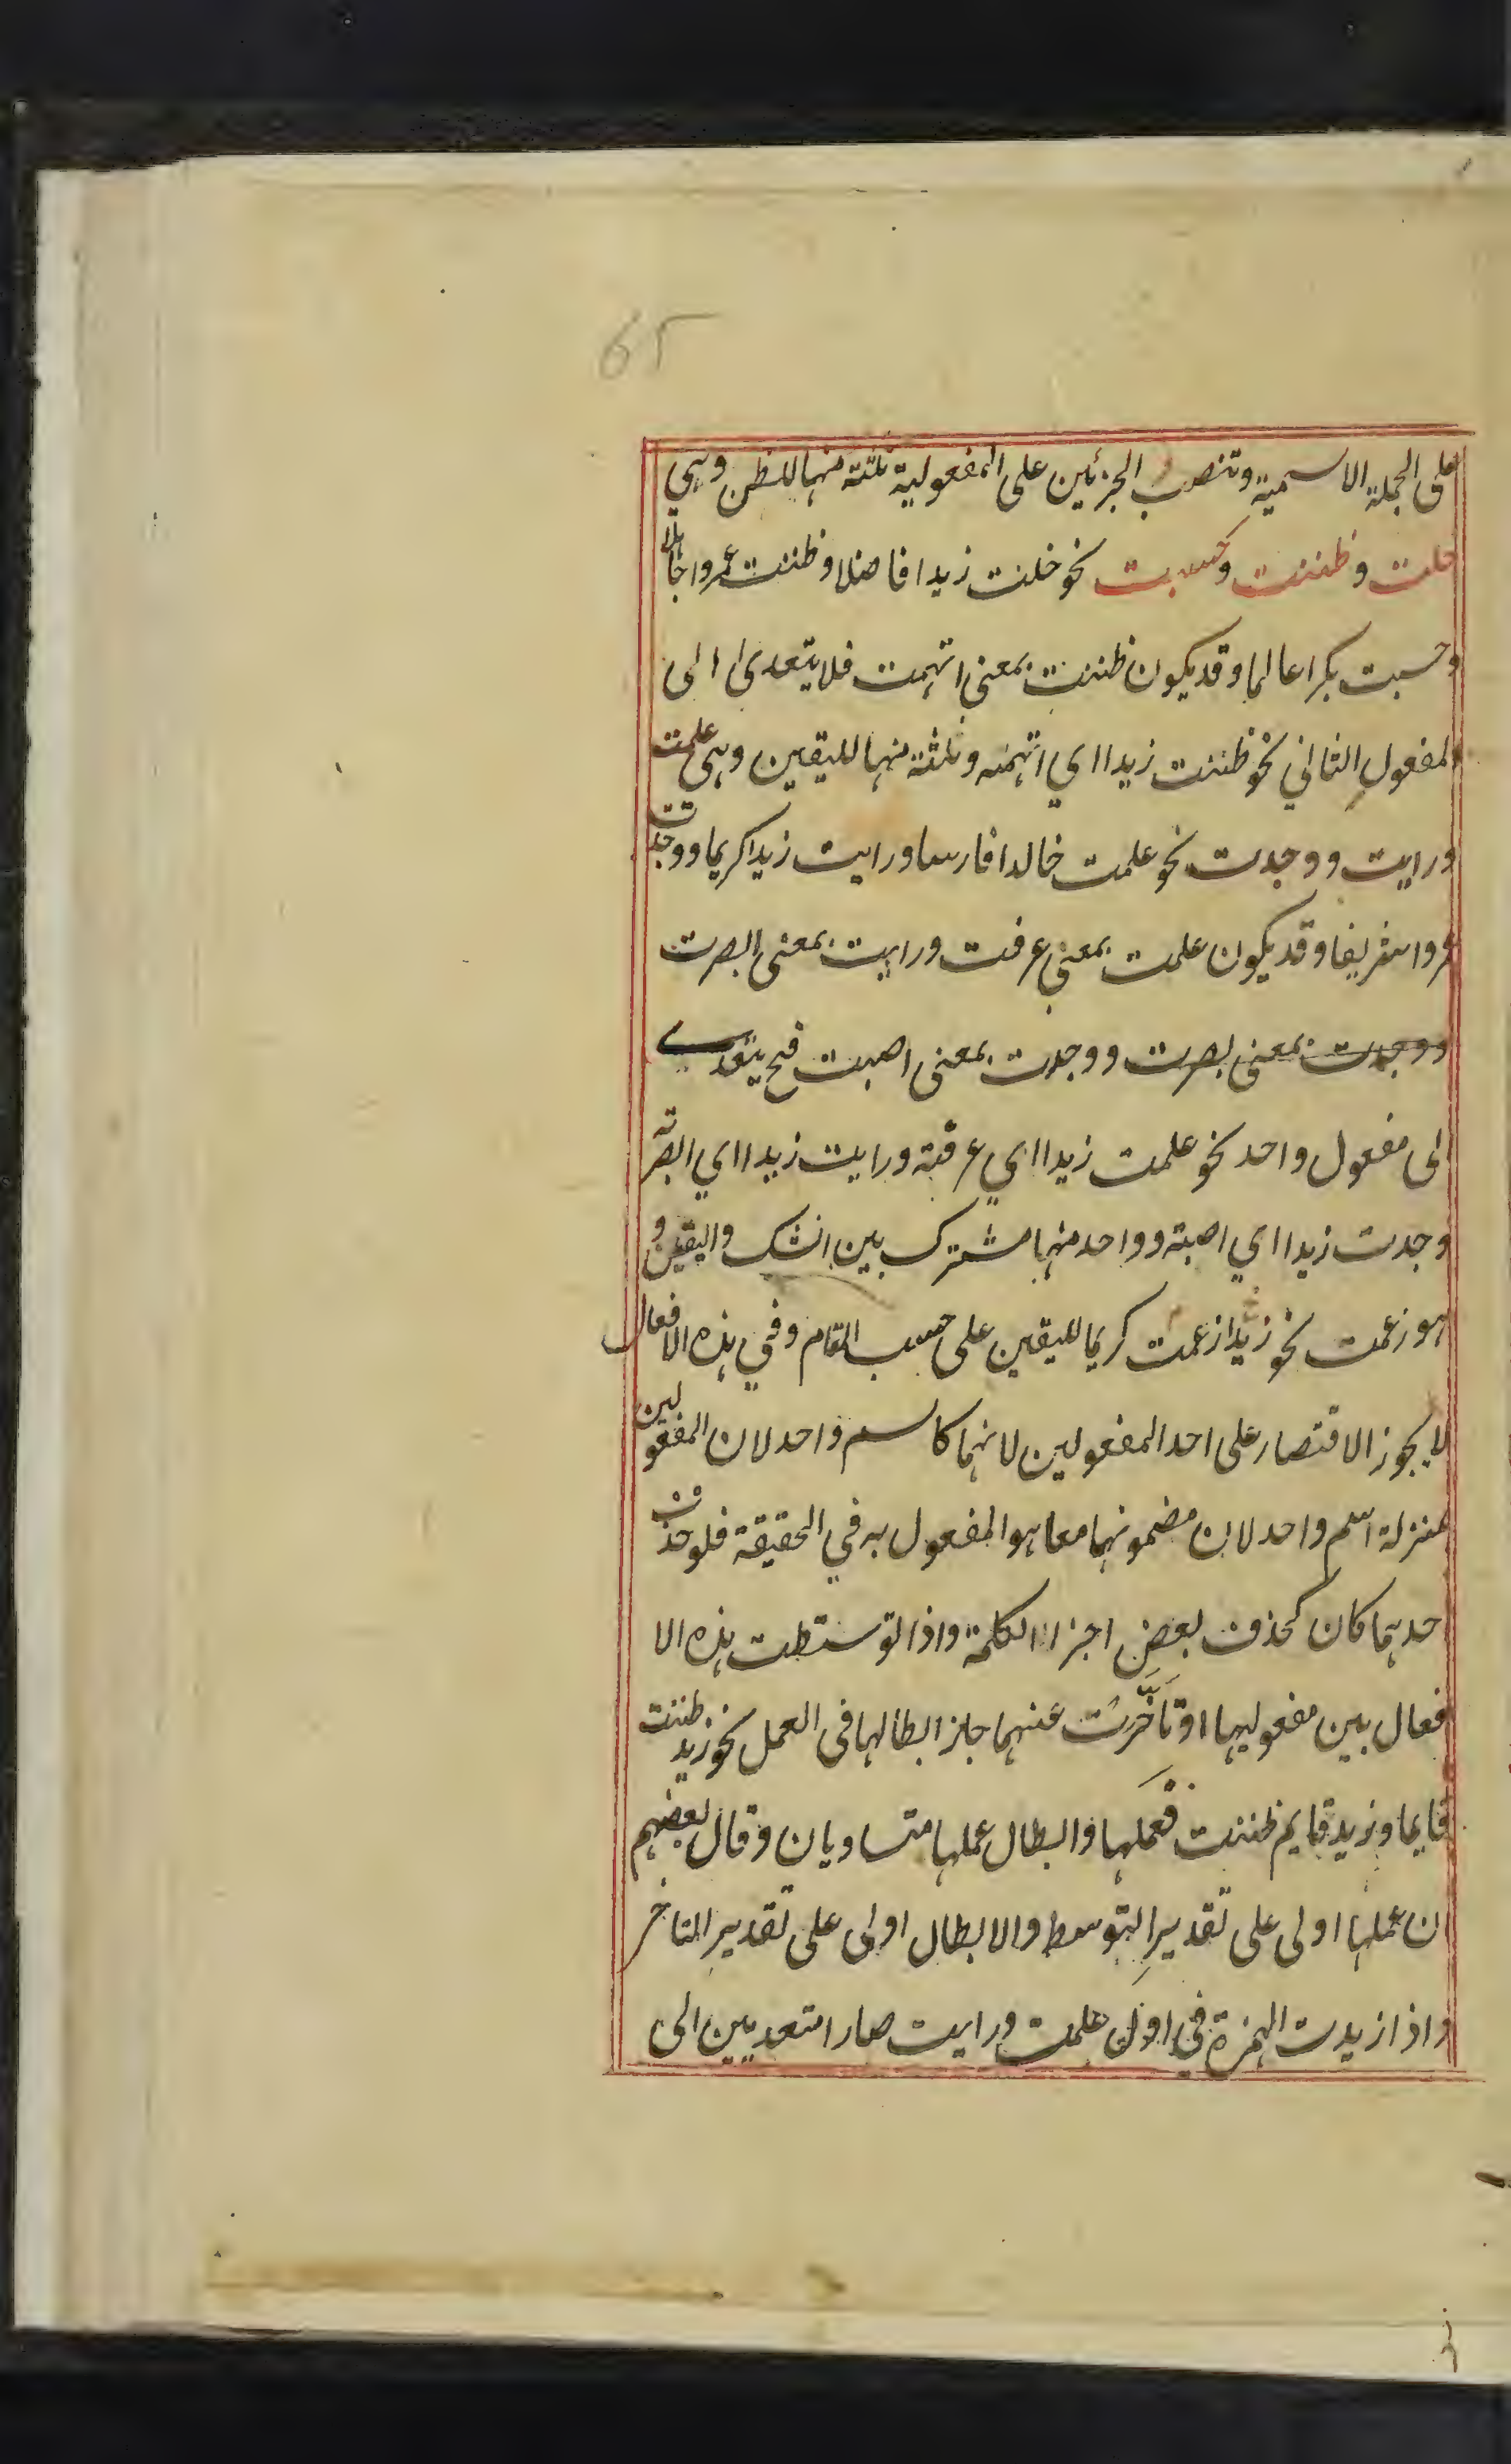 65
على الجملة الاسمية وتنصب الجزئين على المفعولية ثلثة منها للظن وهي
خلت وظننت وحسبت نحو خلت زيدا فاضلا وظننت عمروا جاهلا
وحسبت بكرا عالما وقد يكون ظننت بمعنى اتهمت فلا يتعدى الى
المفعول الثاني نحو ظننت زيدا اي اتهمته وثلثة منها لليقين وهي علمت
ورايت ووجدت نحو علمت خالدا فارسا ورايت زيدا كريما ووجدت
عمروا شريفا وقد يكون علمت بمعنى عرفت ورايت بمعنى ابصرت
ووجدت بمعنى بصرت ووجدت بمعنى اصبت فح يتعدى
الى مفعول واحد نحو علمت زيدا اي عرفته ورايت زيدا اي ابصرته
وجدت زيدا اي اصبته وواحد منها مشترك بين الشك واليقين و
هو زعمت نحو زيدا زعمت كريما لليقين على حسب المقام وفي هذه الافعال
لا يجوز الاقتصار على احد المفعولين لانهما كاسم واحد لان المفعولين
بمنزلة اسم واحد لان مضمونهما معا هو المفعول به في الحقيقة فلو حذفت
احدهما كان كحذف بعض اجزاء الكلمة واذا توسطت هذه الا
فعال بين مفعوليها او تأخرت عنهما جاز ابطالها في العمل نحو زيد ظننت
قايما وزيد قايم ظننت فعملها وابطال عملها متساويان وقال بعضهم
ان عملها اولى على تقدير التوسط والابطال اولى على تقدير التاخر
واذا زيدت الهمزة في اول علمت ورايت صارا متعديين الى